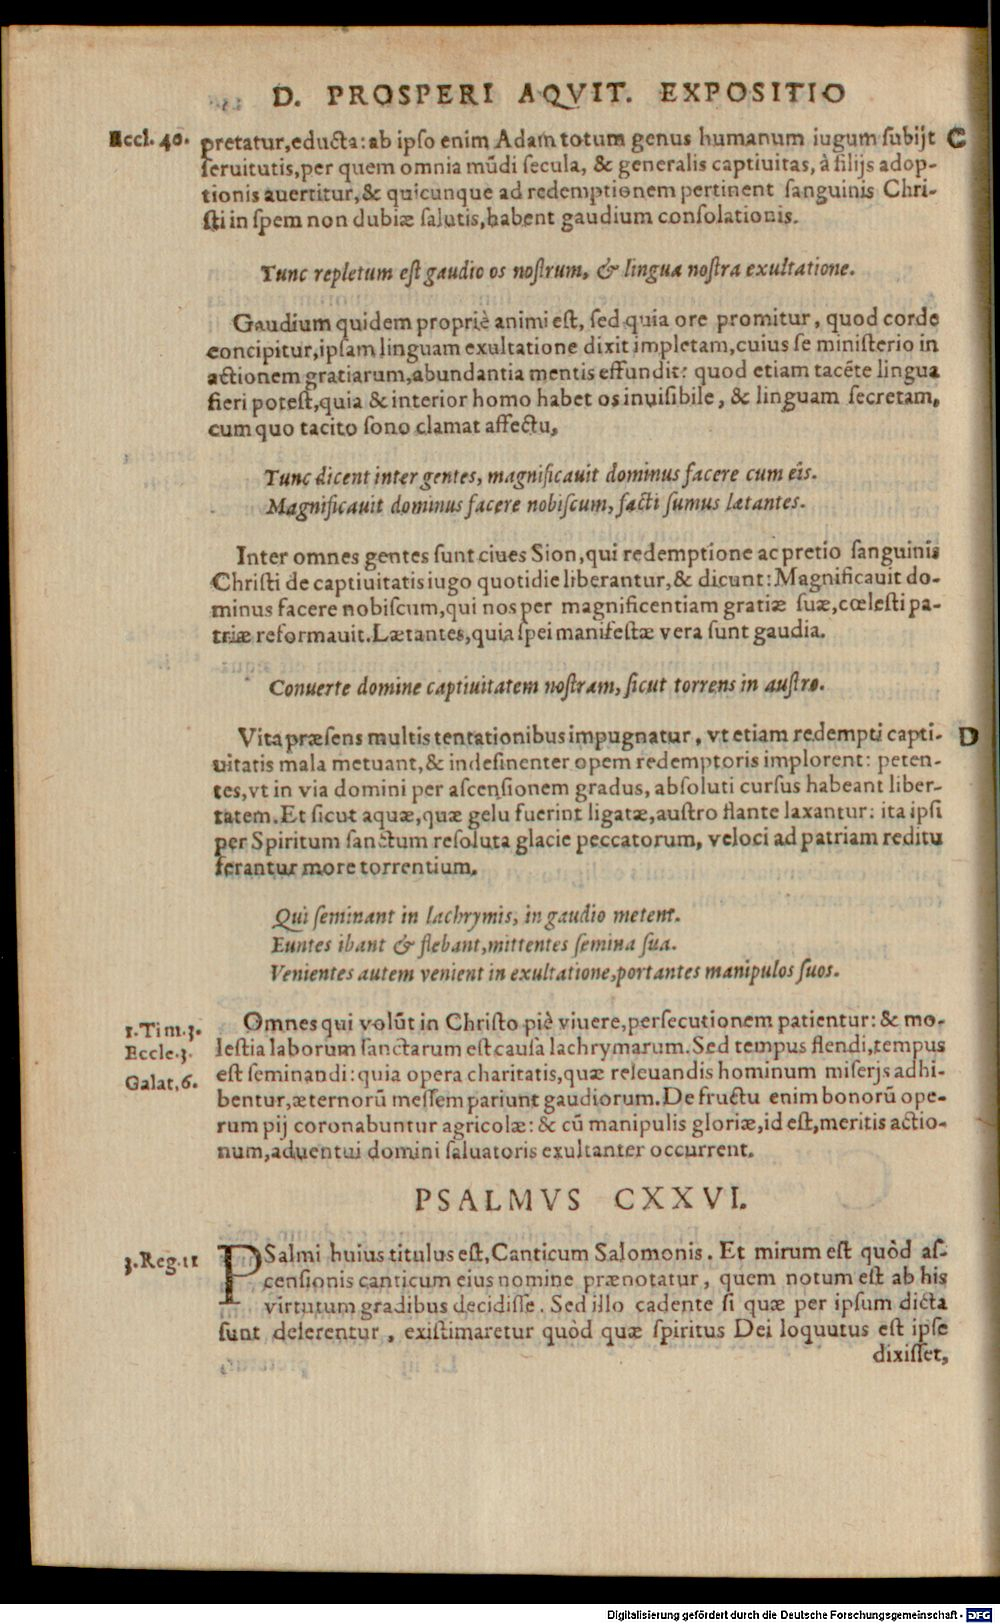 D. PROSPERI AQVIT. EXPOSITIO
Eccl. 40. pretatur, educta: ab ipso enim Adam totum genus humanum iugum subijt C
seruitutis, per quem omnia mũdi secula, & generalis captiuitas, à filijs adop-
tionis auertitur, & quicunque ad redemptionem pertinent sanguinis Chri-
sti in spem non dubiæ salutis, habent gaudium consolationis.
Tunc repletum est gaudio os nostrum, & lingua nostra exultatione.
Gaudium quidem propriè animi est, sed quia ore promitur, quod corde
concipitur, ipsam linguam exultatione dixit impletam, cuius se ministerio in
actionem gratiarum, abundantia mentis effundit: quod etiam tacẽte lingua
fieri potest, quia & interior homo habet os inuisibile, & linguam secretam,
cum quo tacito sono clamat affectu,
Tunc dicent inter gentes, magnificauit dominus facere cum eis.
Magnificauit dominus facere nobiscum, facti sumus lætantes.
Inter omnes gentes sunt ciues Sion, qui redemptione ac pretio sanguinis
Christi de captiuitatis iugo quotidie liberantur, & dicunt: Magnificauit do-
minus facere nobiscum, qui nos per magnificentiam gratiæ suæ, cœlesti pa-
triæ reformauit. Lætantes, quia spei manifestæ vera sunt gaudia.
Conuerte domine captiuitatem nostram, sicut torrens in austro.
Vita præsens multis tentationibus impugnatur, vt etiam redempti capti- D
uitatis mala metuant, & indesinenter opem redemptoris implorent: peten-
tes, vt in via domini per ascensionem gradus, absoluti cursus habeant liber-
tatem. Et sicut aquæ, quæ gelu fuerint ligatæ, austro flante laxantur: ita ipsi
per Spiritum sanctum resoluta glacie peccatorum, veloci ad patriam reditu
ferantur more torrentium.
Qui seminant in lachrymis, in gaudio metent.
Euntes ibant & flebant, mittentes semina sua.
Venientes autem venient in exultatione, portantes manipulos suos.
1. Tim. 3. Omnes qui volũt in Christo piè viuere, persecutionem patientur: & mo-
Eccle. 3. lestia laborum sanctarum est causa lachrymarum. Sed tempus flendi, tempus
Galat, 6. est seminandi: quia opera charitatis, quæ releuandis hominum miserjs adhi-
bentur, æternorũ messem pariunt gaudiorum. De fructu enim bonorũ ope-
rum pij coronabuntur agricolæ: & cũ manipulis gloriæ, id est, meritis actio-
num, aduentui domini saluatoris exultanter occurrent.
PSALMVS CXXVI.
3. Reg. 11 PSalmi huius titulus est, Canticum Salomonis. Et mirum est quòd as-
censionis canticum eius nomine prænotatur, quem notum est ab his
virtutum gradibus decidisse. Sed illo cadente si quæ per ipsum dicta
sunt delerentur, existimaretur quòd quæ spiritus Dei loquutus est ipse
dixisset,
Digitalisierung gefördert durch die Deutsche Forschungsgemeinschaft - DFG